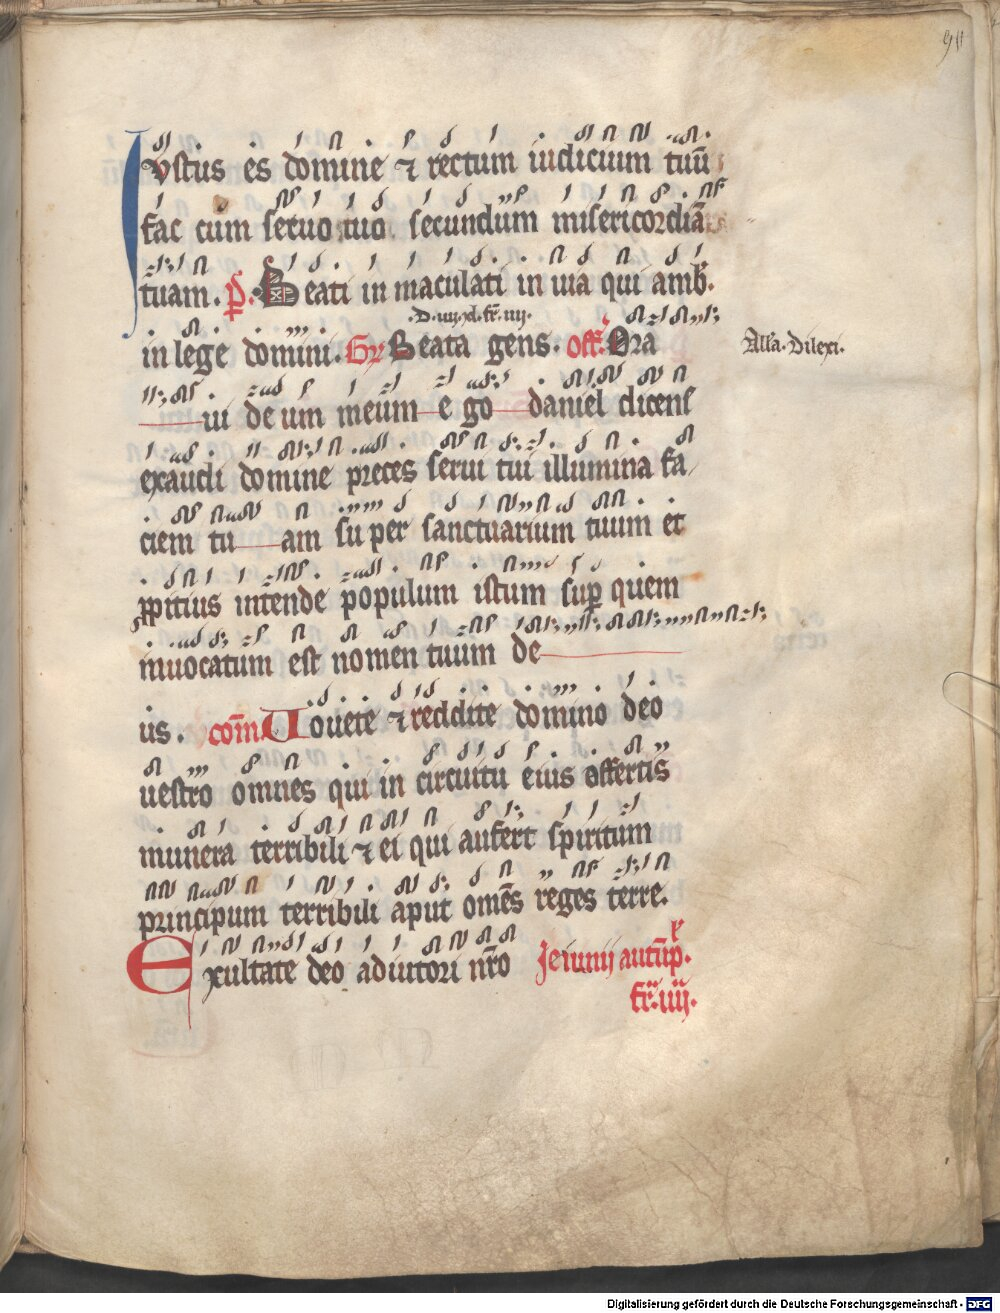 Iustus es domine ⁊ rectum iudicium tuū
fac cum seruo tuo secundum misericordiā
tuam. p̄. Beati in maculati in uia qui amb̄.
.D. iiij. xl. fr̄. iiij.
in lege domini. Gr̄ Beata gens. off. Ora
All'a. Dilexi.
ui de um meum e go daniel dicens
exaudi domine preces serui tui illumina fa
ciem tu am su per sanctuarium tuum et
ꝓpitius intende populum istum suꝑ quem
inuocatum est nomen tuum de
us. com̄ Uouete ⁊ reddite domino deo
uestro omnes qui in circuitu eius offertis
munera terribili ⁊ ei qui aufert spiritum
principum terribili aput om̄es reges terre.
Exultate deo adiutori nr̄o Jeiunij autūp.
fr̄. iiij.
Digitalisierung gefördert durch die Deutsche Forschungsgemeinschaft - DFG